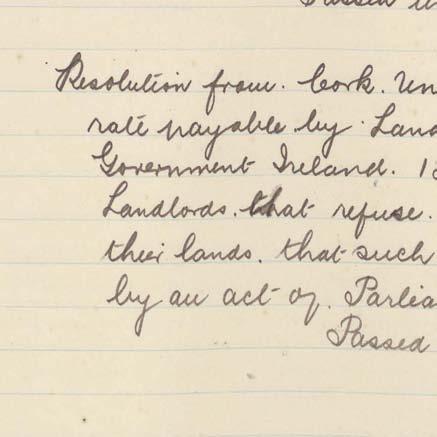 Passed
Resolution from. Cork. Un
rate payable by Land
Government Ireland. 18
Landlords. that refuse.
their lands. that such
by an act of. Parlia
Passed